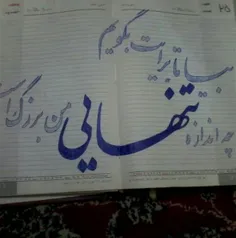 ۲۵
بیا تا برایت بگویم
چه اندازه
تنهایی
من بزرگ است